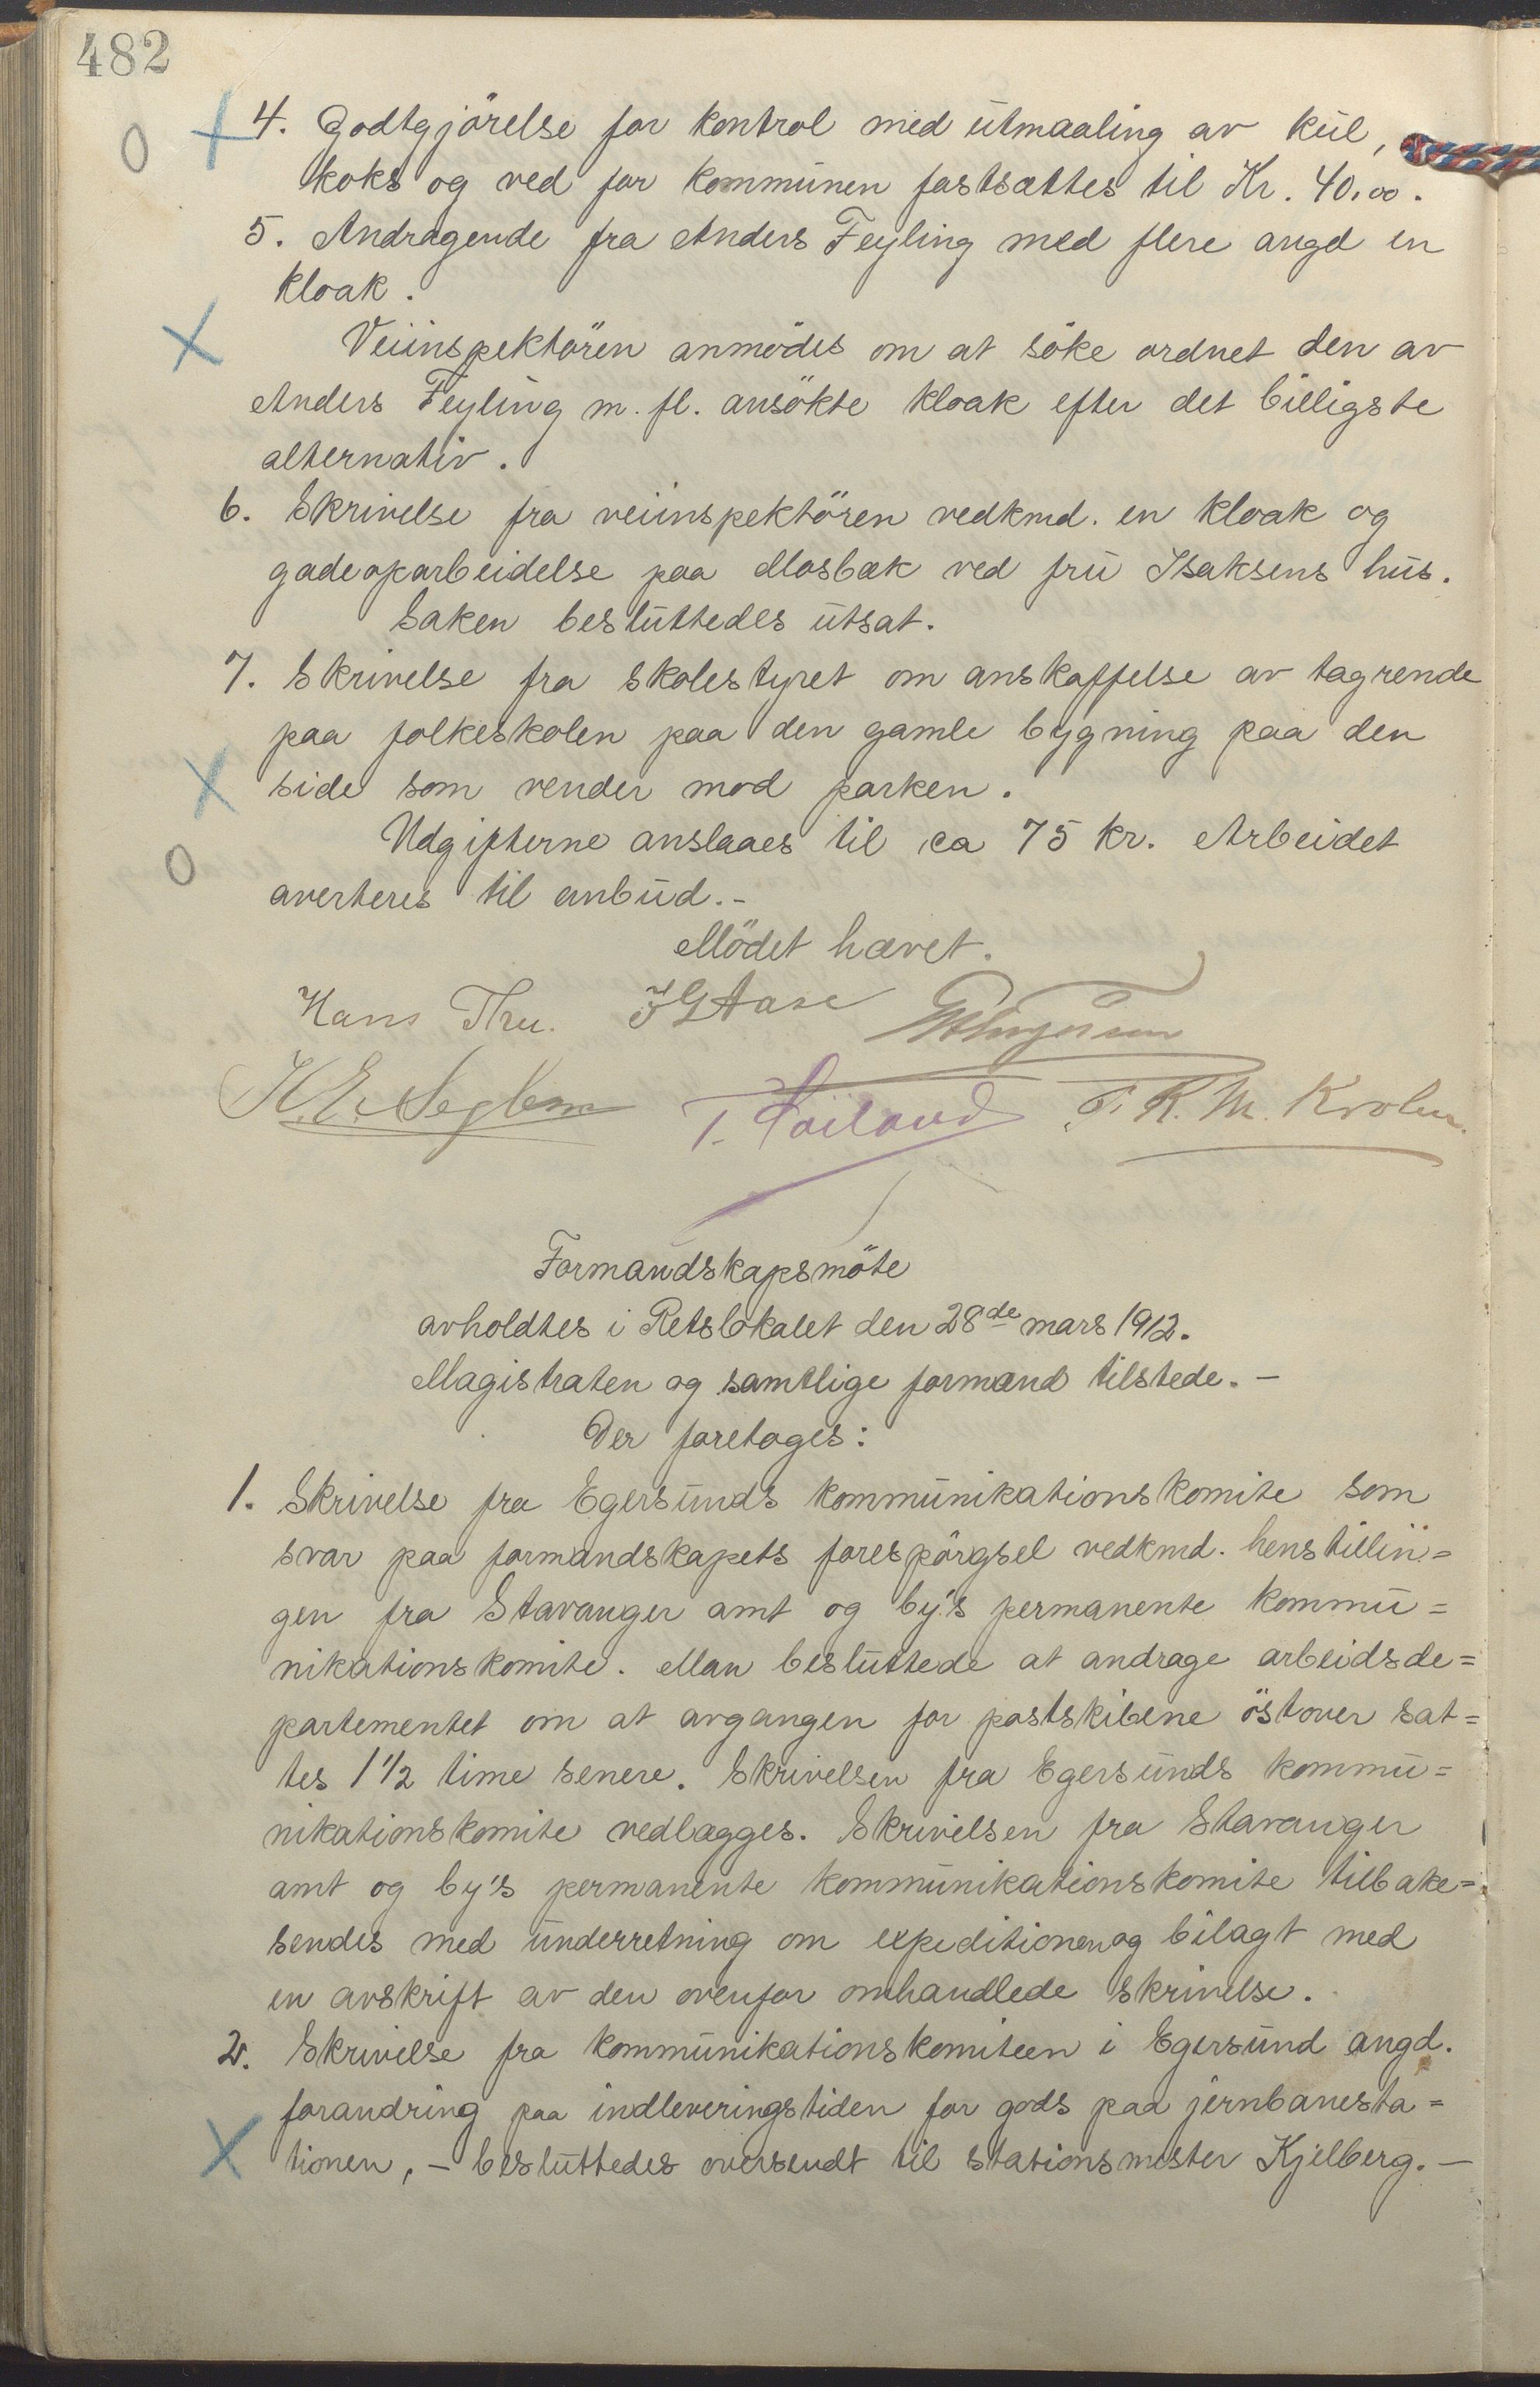 482
4. Godtgjörelse for kontrol med utmaaling av kul,
koks og ved for kommunen fastsættes til Kr. 40,00.
5. Andragende fra Anders Feyling med flere angd en
kloak.
Veiinspektören anmodes om at söke ordnet den av
Anders Feyling m. fl. ansökte kloak efter det billigste
alternativ.
6. Skrivelse fra veiinspektören vedkmd. en kloak og
gadeoparbeidelse paa Mosbæk ved fru Isaksens hus.
Saken besluttedes utsat.
7. Skrivelse fra skolestyret om anskaffelse av tagrende
paa folkeskolen paa den gamle bygning paa den
side som vender mod parken.
Udgifterne anslaaes til ca 75 kr. Arbeidet
averteres til anbud.-
Mödet hævet.
Hans Thu. Aase
K. E. Seglem T. Höiland T. R. M. Krohn.
Formandskapsmöte
avholdtes i Retslokalet den 28de mars 1912.
Magistraten og samtlige formænd tilstede. -
Der foretoges:
1. Skrivelse fra Egersunds kommunikationskomite som
svar paa formandskapets forespörgsel vedkmd. henstillin=
gen fra Stavanger amt og by's permanente kommu=
nikationskomite. Man besluttede at andrage arbeidsde=
partementet om at avgangen for postskibene östover sæt=
tes 1 1/2 time senere. Skrivelsen fra Egersunds kommu=
nikationskomite vedlægges. Skrivelsen fra Stavanger
amt og by's permanente kommunikationskomite tilbake=
sendes med underretning om expeditionen og bilagt med
en avskrift av den ovenfor omhandlede skrivelse.
2. Skrivelse fra kommunikationskomiteen i Egersund angd.
forandring paa indleveringstiden for gods paa jernbanesta=
tionen, - besluttedes oversendt til stationsmester Kjelberg. -